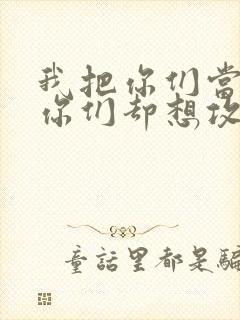 我把你们当
你们却想攻
童話里都是騙